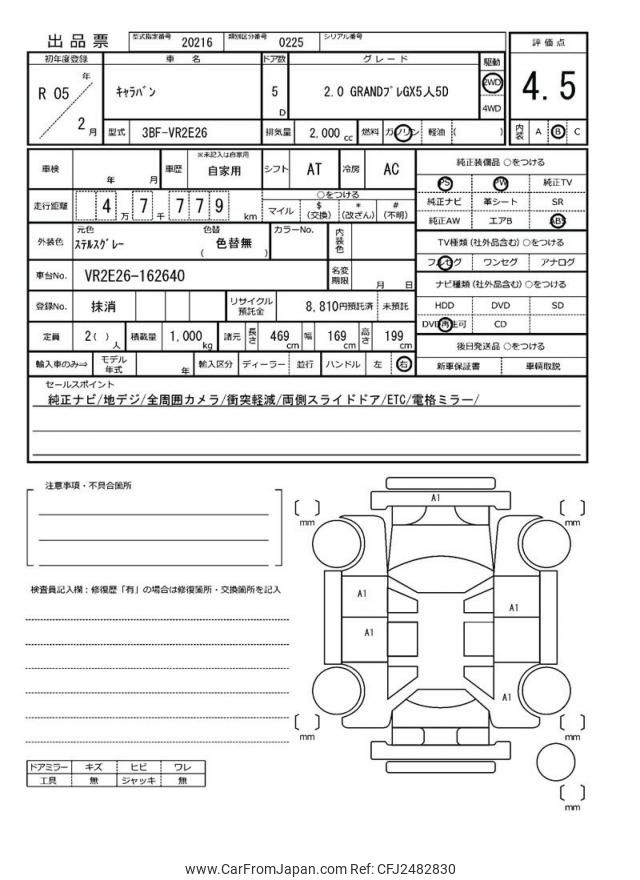 出品票 型式指定番号 20216 類別区分番号 0225 シリアル番号
初年度登録 車 名 ドア数 グレード 駆動 評価点
R 05 年 2 月 ｷｬﾗﾊﾞﾝ 5 D 2.0 GRANDﾌﾟﾚGX5人5D 2WD 4WD 4.5
型式 3BF-VR2E26 排気量 2,000 cc 燃料 ガソリン 軽油 ( ) 内装 A B C
車検 年 月 車歴 ※未記入は自家用 自家用 シフト AT 冷房 AC
走行距離 4 万 7 千 7 7 9 km ○をつける マイル $ (交換) * (改ざん) # (不明)
外装色 元色 ｽﾃﾙｽｸﾞﾚｰ 色替 ( 色替無 ) カラーNo. 内装色
車台No. VR2E26-162640 名変期限 月 日
登録No. 抹消 リサイクル預託金 8,810円預託済 未預託
定員 2( ) 人 積載量 1,000 kg 諸元 長さ 469 cm 幅 169 cm 高さ 199 cm
輸入車のみ⇒ モデル年式 年 輸入区分 ディーラー 並行 ハンドル 左 右
純正装備品 ○をつける
PS PW 純正TV
純正ナビ 革シート SR
純正AW エアB ABS
TV種類 (社外品含む) ○をつける
フルセグ ワンセグ アナログ
ナビ種類 (社外品含む) ○をつける
HDD DVD SD
DVD再生可 CD
後日発送品 ○をつける
新車保証書 車輌取説
セールスポイント
純正ナビ/地デジ/全周囲カメラ/衝突軽減/両側スライドドア/ETC/電格ミラー/
注意事項・不具合箇所
検査員記入欄：修復歴「有」の場合は修復箇所・交換箇所を記入
ドアミラー キズ ヒビ ワレ
工具 無 ジャッキ 無
A1
[ ] mm [ ] mm
A1 A1
A1
A1
[ ] mm [ ] mm
[ ] mm
www.CarFromJapan.com Ref: CFJ2482830